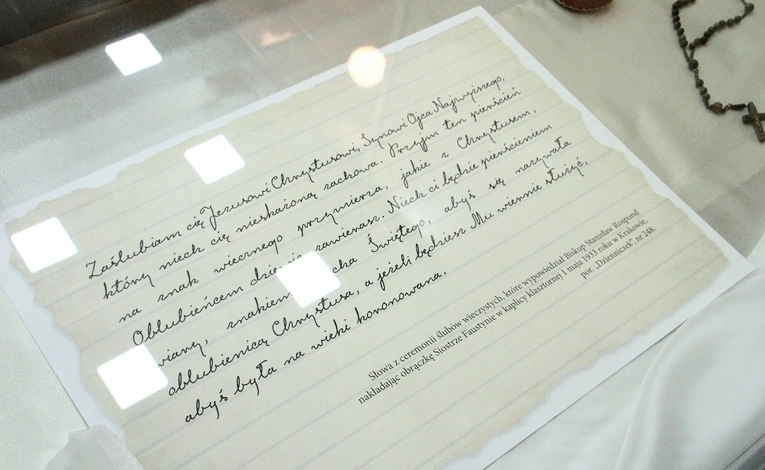 Zaślubiam cię Jezusowi Chrystusowi, Synowi Ojca Najwyższego,
który niech cię nieskażoną zachowa. Przyjm ten pierścień
na znak wiecznego przymierza, jakie z Chrystusem,
Oblubieńcem zawierasz. Niech ci będzie pierścieniem
wiary, znakiem Świętego, abyś się nazywała
oblubienicą Chrystusa, a jeżeli będziesz Mu wiernie służyć,
abyś była na wieki koronowana.
Słowa z ceremonii ślubów wieczystych, które wypowiedział Biskup Stanisław Rospond
nakładając obrączkę Siostrze Faustynie w kaplicy klasztornej 1 maja 1933 roku w Krakowie,
por. „Dzienniczek” nr 248.